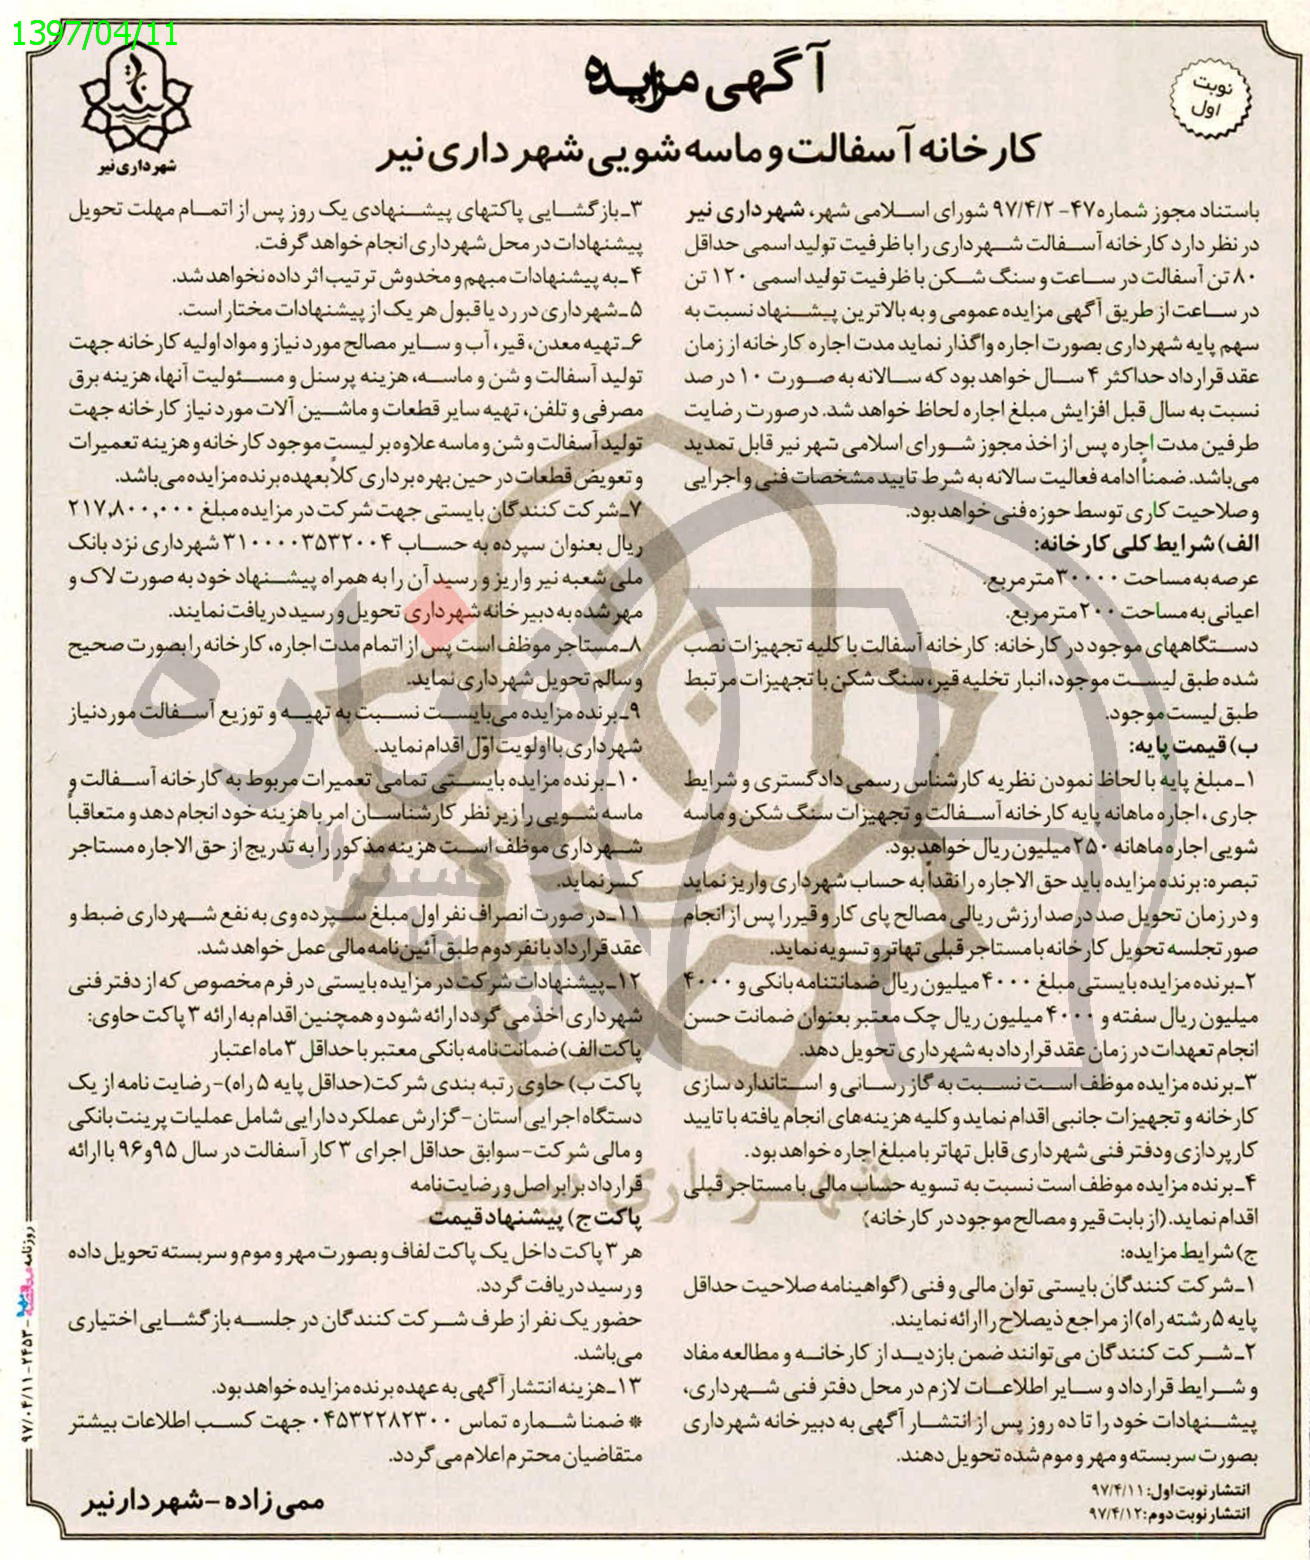 1397/04/11
شهرداری نیر
نوبت
اول
آگهی مزایده
کارخانه آسفالت و ماسه شویی شهرداری نیر
باستناد مجوز شماره ۴۷- ۹۷/۴/۲ شورای اسلامی شهر، شهرداری نیر
در نظر دارد کارخانه آسفالت شهرداری را با ظرفیت تولید اسمی حداقل
۸۰ تن آسفالت در ساعت و سنگ شکن با ظرفیت تولید اسمی ۱۲۰ تن
در ساعت از طریق آگهی مزایده عمومی و به بالاترین پیشنهاد نسبت به
سهم پایه شهرداری بصورت اجاره واگذار نماید مدت اجاره کارخانه از زمان
عقد قرارداد حداکثر ۴ سال خواهد بود که سالانه به صورت ۱۰ درصد
نسبت به سال قبل افزایش مبلغ اجاره لحاظ خواهد شد. درصورت رضایت
طرفین مدت اجاره پس از اخذ مجوز شورای اسلامی شهر نیر قابل تمدید
می‌باشد. ضمناً ادامه فعالیت سالانه به شرط تایید مشخصات فنی و اجرایی
و صلاحیت کاری توسط حوزه فنی خواهد بود.
الف) شرایط کلی کارخانه:
عرصه به مساحت ۳۰۰۰۰ مترمربع.
اعیانی به مساحت ۲۰۰ مترمربع.
دستگاههای موجود در کارخانه: کارخانه آسفالت با کلیه تجهیزات نصب
شده طبق لیست موجود، انبار تخلیه قیر، سنگ شکن با تجهیزات مرتبط
طبق لیست موجود.
ب) قیمت پایه:
۱ـ مبلغ پایه با لحاظ نمودن نظریه کارشناس رسمی دادگستری و شرایط
جاری، اجاره ماهانه پایه کارخانه آسفالت و تجهیزات سنگ شکن و ماسه
شویی اجاره ماهانه ۲۵۰ میلیون ریال خواهد بود.
تبصره: برنده مزایده باید حق الاجاره را نقداً به حساب شهرداری واریز نماید
و در زمان تحویل صد در صد ارزش ریالی مصالح پای کار و قیر را پس از انجام
صورتجلسه تحویل کارخانه با مستاجر قبلی تهاتر و تسویه نماید.
۲ـ برنده مزایده بایستی مبلغ ۴۰۰۰ میلیون ریال ضمانتنامه بانکی و ۴۰۰۰
میلیون ریال سفته و ۴۰۰۰ میلیون ریال چک معتبر بعنوان ضمانت حسن
انجام تعهدات در زمان عقد قرارداد به شهرداری تحویل دهد.
۳ـ برنده مزایده موظف است نسبت به گازرسانی و استاندارد سازی
کارخانه و تجهیزات جانبی اقدام نماید و کلیه هزینه‌های انجام یافته با تایید
کارپردازی و دفتر فنی شهرداری قابل تهاتر با مبلغ اجاره خواهد بود.
۴ـ برنده مزایده موظف است نسبت به تسویه حساب مالی با مستاجر قبلی
اقدام نماید. (از بابت قیر و مصالح موجود در کارخانه)
ج) شرایط مزایده:
۱ـ شرکت کنندگان بایستی توان مالی و فنی (گواهینامه صلاحیت حداقل
پایه ۵ رشته راه) از مراجع ذیصلاح را ارائه نمایند.
۲ـ شرکت کنندگان می‌توانند ضمن بازدید از کارخانه و مطالعه مفاد
و شرایط قرارداد و سایر اطلاعات لازم در محل دفتر فنی شهرداری،
پیشنهادات خود را تا ده روز پس از انتشار آگهی به دبیرخانه شهرداری
بصورت سربسته و مهر و موم شده تحویل دهند.
انتشار نوبت اول: ۹۷/۴/۱۱
انتشار نوبت دوم: ۹۷/۴/۱۲
۳ـ بازگشایی پاکتهای پیشنهادی یک روز پس از اتمام مهلت تحویل
پیشنهادات در محل شهرداری انجام خواهد گرفت.
۴ـ به پیشنهادات مبهم و مخدوش ترتیب اثر داده نخواهد شد.
۵ـ شهرداری در رد یا قبول هر یک از پیشنهادات مختار است.
۶ـ تهیه معدن، قیر، آب و سایر مصالح مورد نیاز و مواد اولیه کارخانه جهت
تولید آسفالت و شن و ماسه، هزینه پرسنل و مسئولیت آنها، هزینه برق
مصرفی و تلفن، تهیه سایر قطعات و ماشین آلات مورد نیاز کارخانه جهت
تولید آسفالت و شن و ماسه علاوه بر لیست موجود کارخانه و هزینه تعمیرات
و تعویض قطعات در حین بهره برداری کلاً بعهده برنده مزایده می‌باشد.
۷ـ شرکت کنندگان بایستی جهت شرکت در مزایده مبلغ ۲۱۷,۸۰۰,۰۰۰
ریال بعنوان سپرده به حساب ۳۱۰۰۰۰۳۵۳۲۰۰۴ شهرداری نزد بانک
ملی شعبه نیر واریز و رسید آن را به همراه پیشنهاد خود به صورت لاک و
مهر شده به دبیرخانه شهرداری تحویل و رسید دریافت نمایند.
۸ـ مستاجر موظف است پس از اتمام مدت اجاره، کارخانه را بصورت صحیح
و سالم تحویل شهرداری نماید.
۹ـ برنده مزایده می‌بایست نسبت به تهیه و توزیع آسفالت مورد نیاز
شهرداری با اولویت اوّل اقدام نماید.
۱۰ـ برنده مزایده بایستی تمامی تعمیرات مربوط به کارخانه آسفالت و
ماسه شویی را زیر نظر کارشناسان امر با هزینه خود انجام دهد و متعاقباً
شهرداری موظف است هزینه مذکور را به تدریج از حق الاجاره مستاجر
کسر نماید.
۱۱ـ در صورت انصراف نفر اول مبلغ سپرده وی به نفع شهرداری ضبط و
عقد قرارداد با نفر دوم طبق آئین نامه مالی عمل خواهد شد.
۱۲ـ پیشنهادات شرکت در مزایده بایستی در فرم مخصوص که از دفتر فنی
شهرداری اخذ می گردد ارائه شود و همچنین اقدام به ارائه ۳ پاکت حاوی:
پاکت الف) ضمانت‌نامه بانکی معتبر با حداقل ۳ ماه اعتبار
پاکت ب) حاوی رتبه بندی شرکت (حداقل پایه ۵ راه)- رضایت نامه از یک
دستگاه اجرایی استان- گزارش عملکرد دارایی شامل عملیات پرینت بانکی
و مالی شرکت- سوابق حداقل اجرای ۳ کار آسفالت در سال ۹۵ و ۹۶ با ارائه
قرارداد برابر اصل و رضایت‌نامه
پاکت ج) پیشنهاد قیمت
هر ۳ پاکت داخل یک پاکت لفاف و بصورت مهر و موم و سربسته تحویل داده
و رسید دریافت گردد.
حضور یک نفر از طرف شرکت کنندگان در جلسه بازگشایی اختیاری
می‌باشد.
۱۳ـ هزینه انتشار آگهی به عهده برنده مزایده خواهد بود.
* ضمنا شماره تماس ۰۴۵۳۲۲۸۲۳۰۰ جهت کسب اطلاعات بیشتر
متقاضیان محترم اعلام می گردد.
ممی زاده - شهردار نیر
روزنامه - ۲۴۵۳ - ۹۷/۰۴/۱۱